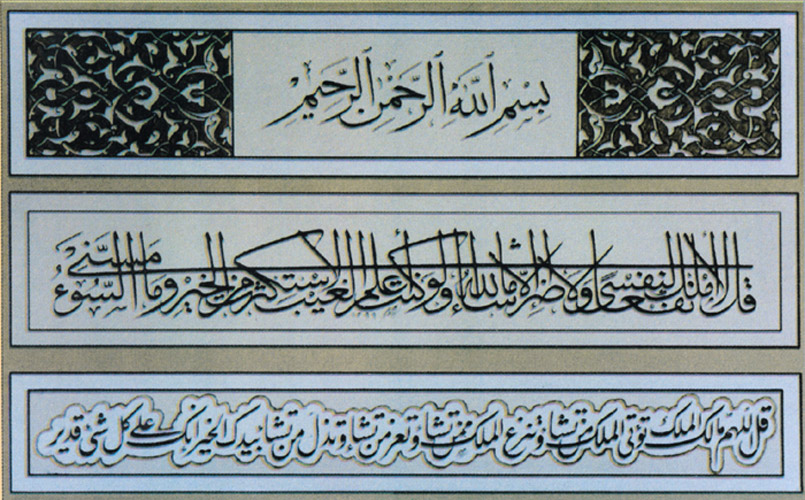 بِسْمِ ٱللَّهِ ٱلرَّحْمٰنِ ٱلرَّحِيْمِ
قل لا أملك لنفسي نفعا ولا ضرا إلا ما شاء الله ولو كنت أعلم الغيب لاستكثرت من الخير وما مسني السوء
قل اللهم مالك الملك توتي الملك من تشاء وتنزع الملك ممن تشاء وتعز من تشاء وتذل من تشاء بيدك الخير انك على كل شئ قدير